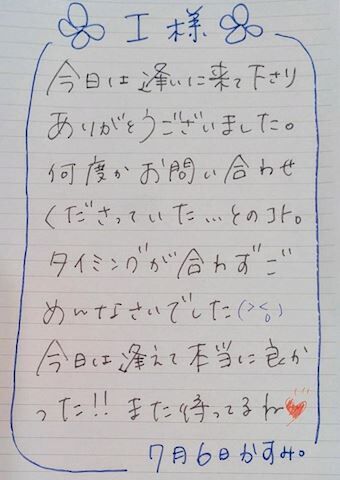 I様
今日は逢いに来て下さり
ありがとうございました。
何度かお問い合わせ
くださっていた…とのコト。
タイミングが合わずご
めんなさいでした(><)
今日は逢えて本当に良か
った!!また待ってるね
7月6日かすみ。